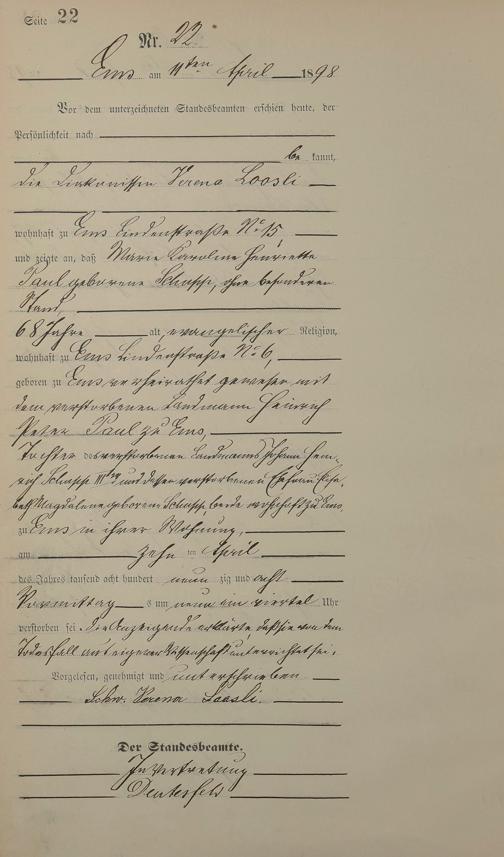 Seite 22
Nr. 22.
Ems am 11ten April 1898
Vor dem unterzeichneten Standesbeamten erschien heute, der
Persönlichkeit nach
be kannt,
die Diakonissin Verena Loosli
wohnhaft zu Ems Lindenstraße No 15,
und zeigte an, daß Marie Karoline Henriette
Paul geborene Schupp, ohne besonderen
Stand,
68 Jahre alt, evangelischer Religion,
wohnhaft zu Ems Lindenstraße No 6,
geboren zu Ems verheirathet gewesen mit
dem verstorbenen Landmann Heinrich
Peter Paul zu Ems,
Tochter des verstorbenen Landmanns Johann Hein-
rich Schupp und dessen verstorbenen Ehefrau Elisa-
beth Magdalene geborene Schupp, beide wohnhaft zu Ems,
zu Ems in ihrer Wohnung,
am zehn ten April
des Jahres tausend acht hundert neun zig und acht
Vormittag s um neun ein viertel Uhr
verstorben sei. Die Anzeigende erklärte, daß sie von dem
Todesfall aus eigener Wissenschaft unterrichtet sei.
Vorgelesen, genehmigt und unterschrieben
Schw. Verena Loosli.
Der Standesbeamte.
In Vertretung